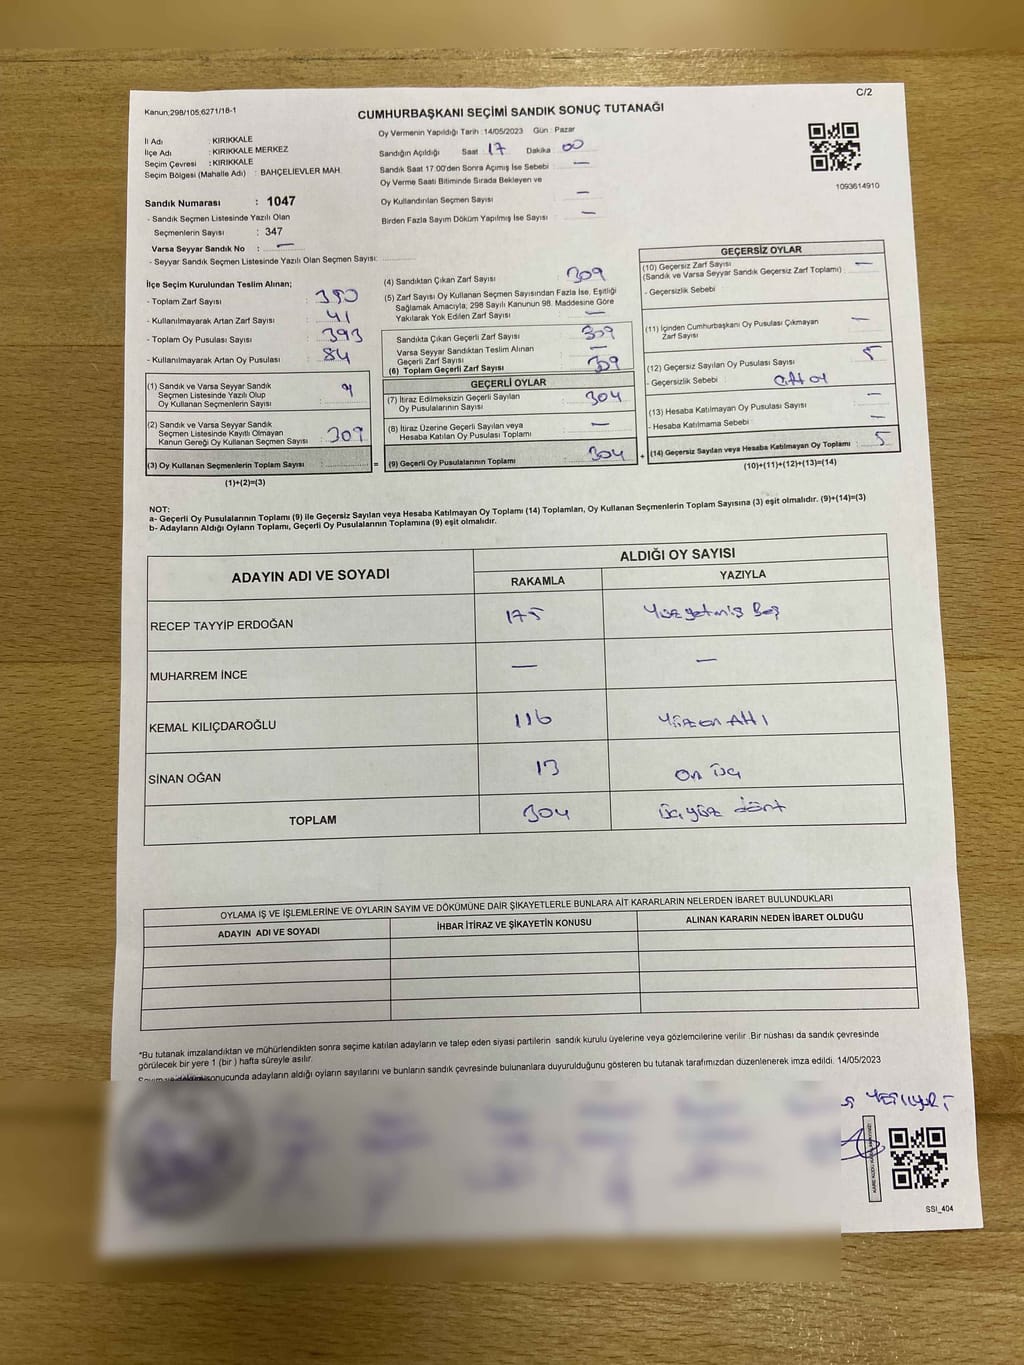 C/2
Kanun;298/105;6271/18-1
CUMHURBAŞKANI SEÇİMİ SANDIK SONUÇ TUTANAĞI
İl Adı : KIRIKKALE
İlçe Adı : KIRIKKALE MERKEZ
Seçim Çevresi : KIRIKKALE
Seçim Bölgesi (Mahalle Adı) : BAHÇELİEVLER MAH.
Oy Vermenin Yapıldığı Tarih :14/05/2023 Gün : Pazar
Sandığın Açıldığı Saat 17 Dakika 00
Sandık Saat 17.00'den Sonra Açımış İse Sebebi : —
Oy Verme Saati Bitiminde Sırada Bekleyen ve
Oy Kullandırılan Seçmen Sayısı : —
Birden Fazla Sayım Döküm Yapılmış İse Sayısı : —
1093614910
Sandık Numarası : 1047
- Sandık Seçmen Listesinde Yazılı Olan
Seçmenlerin Sayısı : 347
Varsa Seyyar Sandık No : —
- Seyyar Sandık Seçmen Listesinde Yazılı Olan Seçmen Sayısı:
İlçe Seçim Kurulundan Teslim Alınan;
- Toplam Zarf Sayısı : 350
- Kullanılmayarak Artan Zarf Sayısı : 41
- Toplam Oy Pusulası Sayısı : 393
- Kullanılmayarak Artan Oy Pusulası : 84
(1) Sandık ve Varsa Seyyar Sandık
Seçmen Listesinde Yazılı Olup
Oy Kullanan Seçmenlerin Sayısı :
(2) Varsa Seyyar Sandık
Seçmen Listesinde Kayıtlı Olmayan
Kanun Gereği Oy Kullanan Seçmen Sayısı : 309
(3) Oy Kullanan Seçmenlerin Toplam Sayısı :
=
(1)+(2)=(3)
(4) Sandıktan Çıkan Zarf Sayısı : 309
(5) Zarf Sayısı Oy Kullanan Seçmen Sayısından Fazla İse, Eşitliği
Sağlamak Amacıyla, 298 Sayılı Kanunun 98. Maddesine Göre
Yakılarak Yok Edilen Zarf Sayısı : —
Sandıkta Çıkan Geçerli Zarf Sayısı : 309
Varsa Seyyar Sandıktan Teslim Alınan
Geçerli Zarf Sayısı : —
(6) Toplam Geçerli Zarf Sayısı : 309
GEÇERLİ OYLAR
(7) İtiraz Edilmeksizin Geçerli Sayılan
Oy Pusulalarının Sayısı : 304
(8) İtiraz Üzerine Geçerli Sayılan veya
Hesaba Katılan Oy Pusulası Toplamı : —
(9) Geçerli Oy Pusulalarının Toplamı : 304
+
GEÇERSİZ OYLAR
(10) Geçersiz Zarf Sayısı : —
(Sandık ve Varsa Seyyar Sandık Geçersiz Zarf Toplamı)
- Geçersizlik Sebebi :
(11) İçinden Cumhurbaşkanı Oy Pusulası Çıkmayan
Zarf Sayısı : —
(12) Geçersiz Sayılan Oy Pusulası Sayısı : 5
- Geçersizlik Sebebi :
(13) Hesaba Katılmayan Oy Pusulası Sayısı : —
- Hesaba Katılmama Sebebi : —
(14) Geçersiz Sayılan veya Hesaba Katılmayan Oy Toplamı : 5
(10)+(11)+(12)+(13)=(14)
NOT:
a- Geçerli Oy Pusulalarının Toplamı (9) ile Geçersiz Sayılan veya Hesaba Katılmayan Oy Toplamı (14) Toplamları, Oy Kullanan Seçmenlerin Toplam Sayısına (3) eşit olmalıdır. (9)+(14)=(3)
b- Adayların Aldığı Oyların Toplamı, Geçerli Oy Pusulalarının Toplamına (9) eşit olmalıdır.
ADAYIN ADI VE SOYADI
ALDIĞI OY SAYISI
RAKAMLA YAZIYLA
RECEP TAYYİP ERDOĞAN 175 Yüzyetmiş beş
MUHARREM İNCE — —
KEMAL KILIÇDAROĞLU 116 Yüzon Altı
SİNAN OĞAN 13 On üç
TOPLAM 304 Üçyüz dört
OYLAMA İŞ VE İŞLEMLERİNE VE OYLARIN SAYIM VE DÖKÜMÜNE DAİR ŞİKAYETLERLE BUNLARA AİT KARARLARIN NELERDEN İBARET BULUNDUKLARI
ADAYIN ADI VE SOYADI İHBAR İTİRAZ VE ŞİKAYETİN KONUSU ALINAN KARARIN NEDEN İBARET OLDUĞU
*Bu tutanak imzalandıktan ve mühürlendikten sonra seçime katılan adayların ve talep eden siyasi partilerin sandık kurulu üyelerine veya gözlemcilerine verilir .Bir nüshası da sandık çevresinde
görülecek bir yere 1 (bir ) hafta süreyle asılır.
sonucunda adayların aldığı oyların sayılarını ve bunların sandık çevresinde bulunanlara duyurulduğunu gösteren bu tutanak tarafımızdan düzenlenerek imza edildi. 14/05/2023
SSI_404